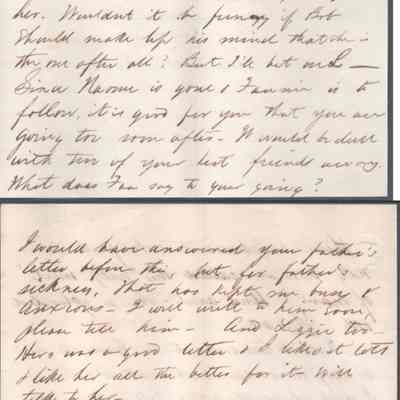 her. Wouldn't it be funny if Bob
should make up his mind that she is
the one after all? But I'll bet on L—
Since Naomi is gone & Fannie is to
follow, it is good for you that you are
going too soon after. It would be dull
with two of your best friends away.
What does Fan say to your going?
I would have answered your father's
letter before this, but for father's
sickness. That has kept me busy &
anxious. I will write to him soon,
please tell him. And Lizzie too.
Hers was a good letter & I liked it lots
& like her all the better for it. Will
talk to her